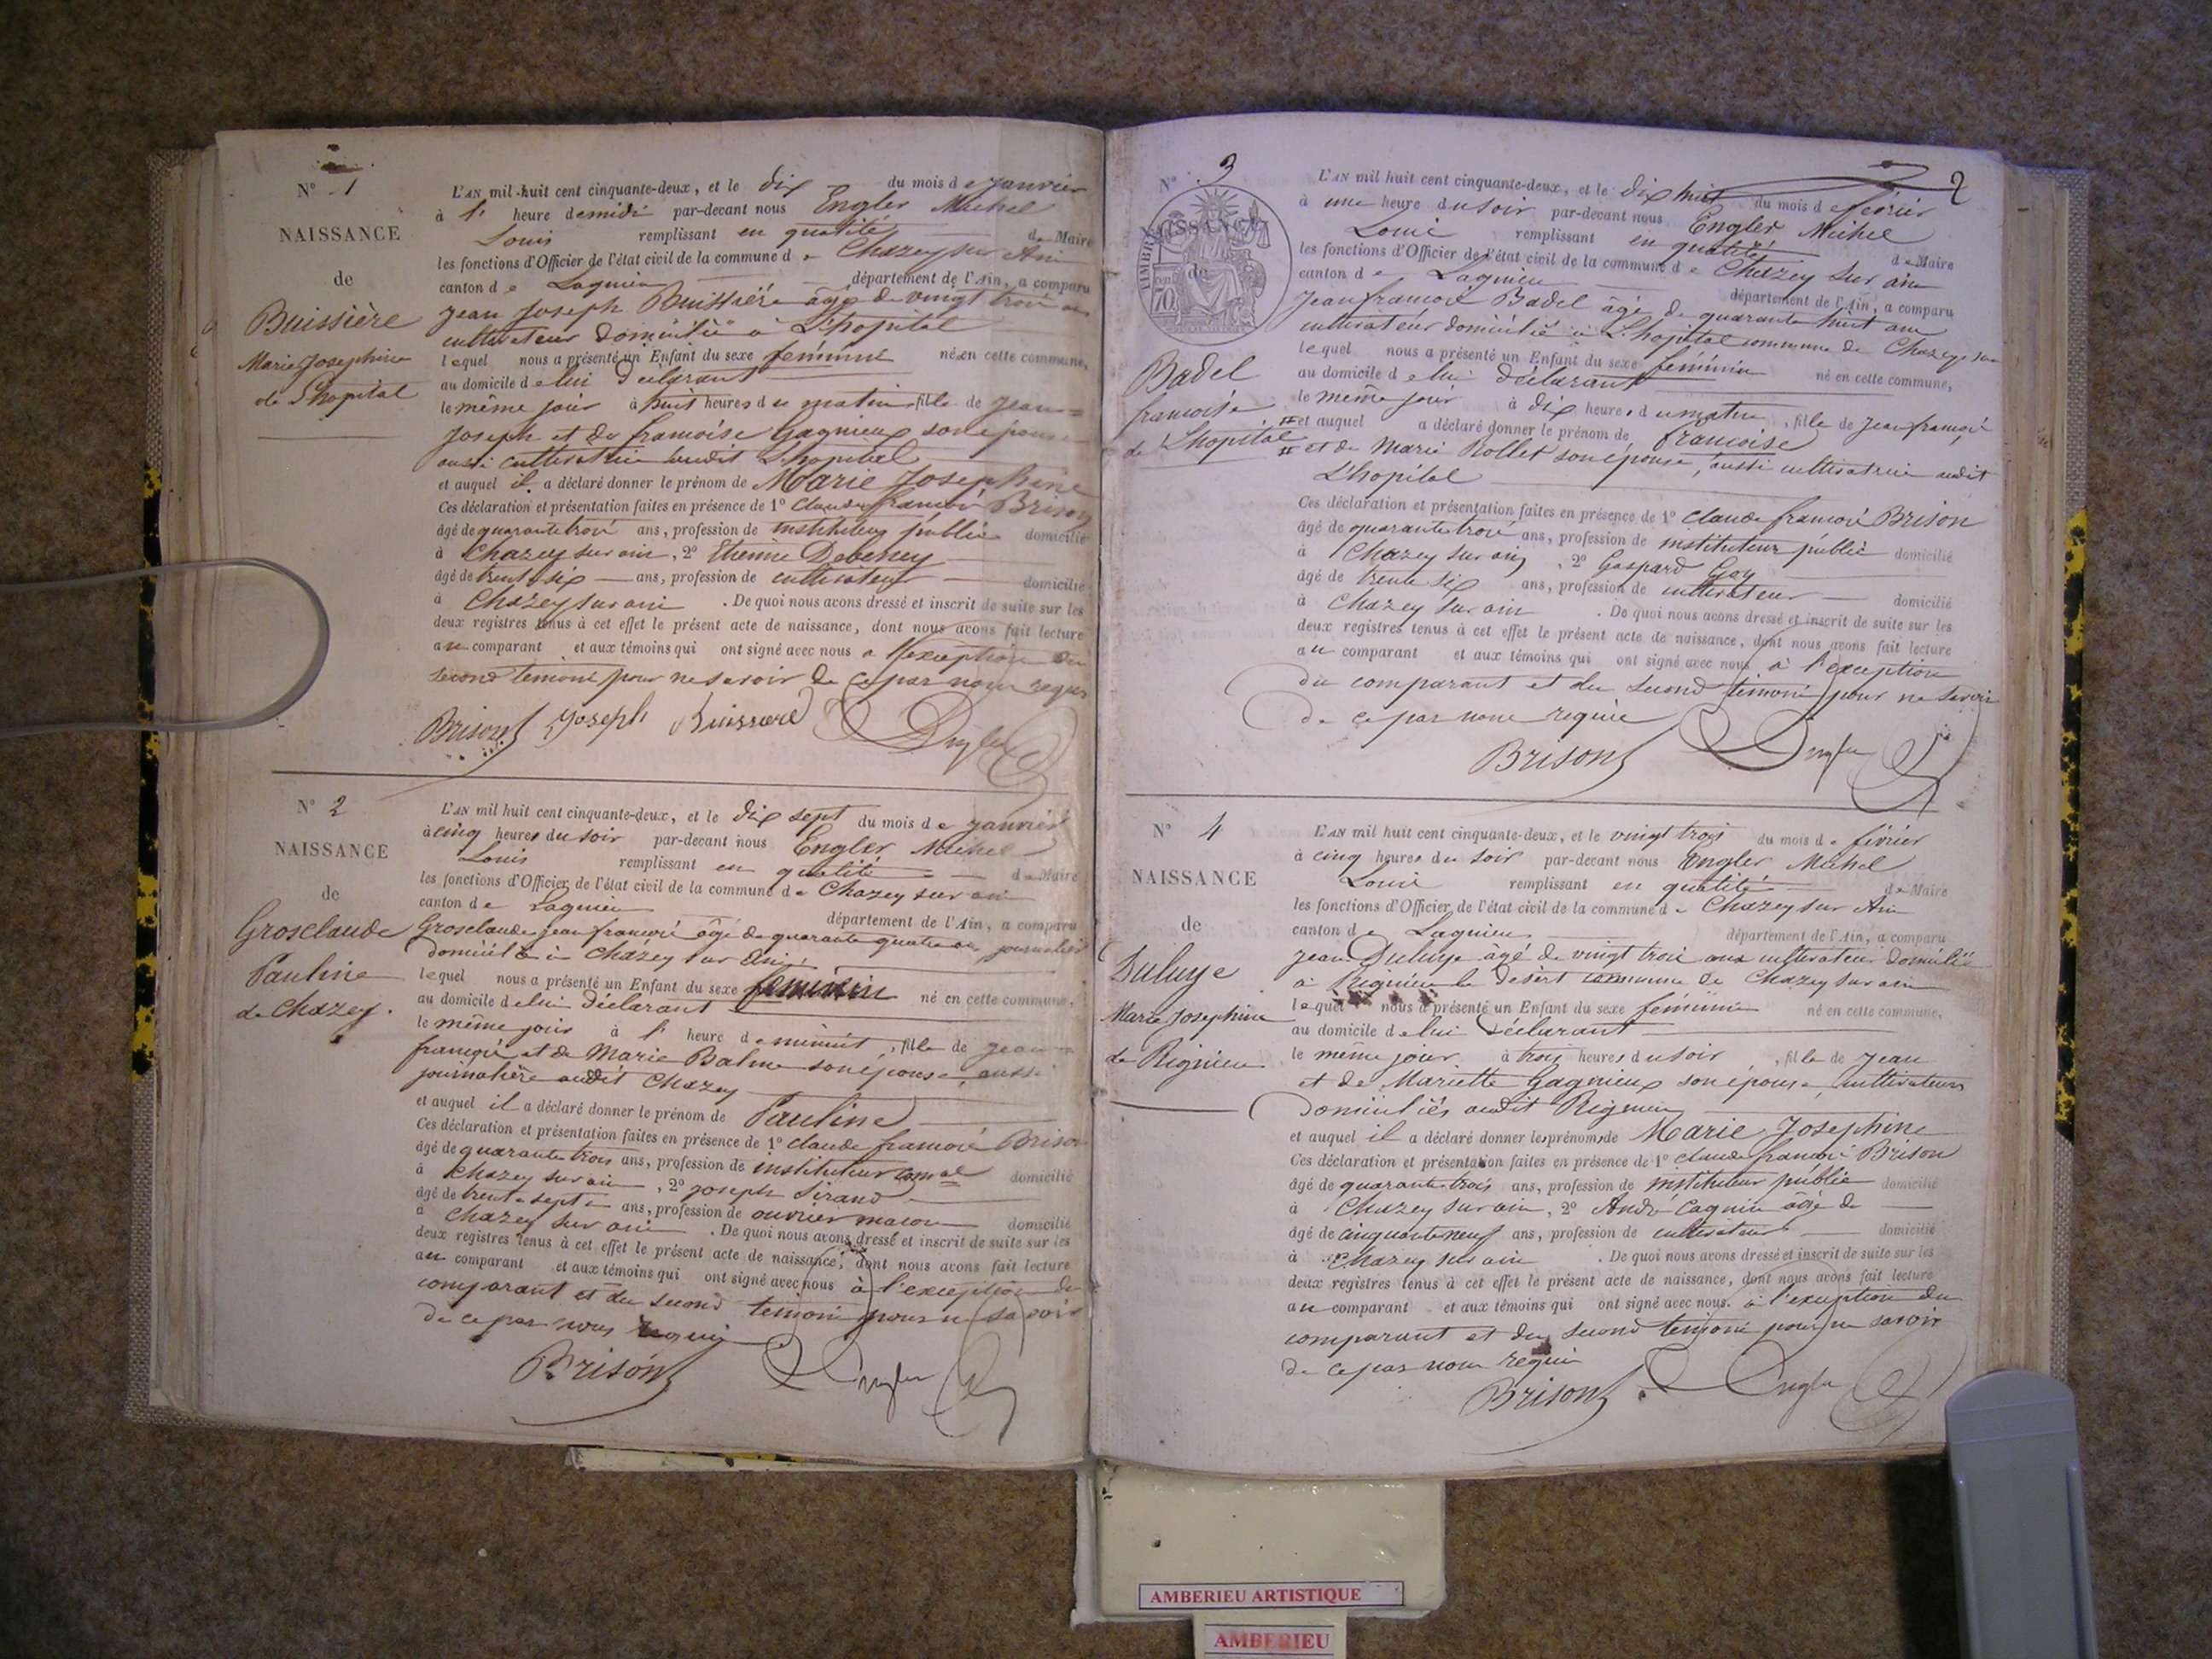 N° 1
NAISSANCE
de
Buissière
Marie Josephine
de L'hopital
L'AN mil huit cent cinquante-deux, et le dix du mois de janvier
à l' heure de midi par-devant nous Engler Michel
Louis remplissant en qualité de Maire
les fonctions d'Officier de l'état civil de la commune de Chazey sur Ain
canton de Lagnieu département de l'Ain, a comparu
jean joseph Buissière âgé de vingt trois ans
cultivateur domicilié à L'hopital
lequel nous a présenté un Enfant du sexe féminin né en cette commune,
au domicile de lui déclarant
le même jour à huit heures du matin, fille de jean
joseph et de francoise Gagnieux son épouse
aussi cultivatrice audit L'hopital
et auquel il a déclaré donner le prénom de Marie Josephine
Ces déclaration et présentation faites en présence de 1° Claude francois Brison
âgé de quarante trois ans, profession de instituteur public domicilié
à Chazey sur ain, 2° Etienne Debeney
âgé de trente six ans, profession de cultivateur domicilié
à Chazey sur ain . De quoi nous avons dressé et inscrit de suite sur les
deux registres tenus à cet effet le présent acte de naissance, dont nous avons fait lecture
au comparant et aux témoins qui ont signé avec nous a l'exception du
second témoin pour ne savoir de ce par nous requis
Brison joseph Buissiere Engler
N° 2
NAISSANCE
de
Grosclaude
Pauline
de Chazey.
L'AN mil huit cent cinquante-deux, et le dix sept du mois de janvier
à cinq heures du soir par-devant nous Engler Michel
Louis remplissant en qualité de Maire
les fonctions d'Officier de l'état civil de la commune de Chazey sur ain
canton de Lagnieu département de l'Ain, a comparu
Grosclaude jean francois âgé de quarante quatre ans, journalier
domicilié à Chazey sur Ain
lequel nous a présenté un Enfant du sexe féminin né en cette commune,
au domicile de lui déclarant
le même jour à l' heure de minuit, fille de jean
francois et de Marie Balme son épouse, aussi
journalière audit Chazey
et auquel il a déclaré donner le prénom de Pauline
Ces déclaration et présentation faites en présence de 1° Claude francois Brison
âgé de quarante trois ans, profession de instituteur comal domicilié
à Chazey sur ain, 2° joseph Sirand
âgé de trente sept ans, profession de ouvrier macon domicilié
à Chazey sur ain . De quoi nous avons dressé et inscrit de suite sur les
deux registres tenus à cet effet le présent acte de naissance, dont nous avons fait lecture
au comparant et aux témoins qui ont signé avec nous à l'exception du
comparant et du second temoin pour ne savoir
de ce par nous requis
Brison Engler
2
N° 3
NAISSANCE
de
TIMBRE
70
Badel
francoise
de L'hopital
L'AN mil huit cent cinquante-deux, et le dix huit du mois de fevrier
à une heure du soir par-devant nous Engler Michel
Louis remplissant en qualité de Maire
les fonctions d'Officier de l'état civil de la commune de Chazey sur ain
canton de Lagnieu département de l'Ain, a comparu
Jean francois Badel âgé de quarante huit ans
cultivateur domicilié à L'hopital commune de Chazey sur
lequel nous a présenté un Enfant du sexe féminin né en cette commune,
au domicile de lui déclarant
le même jour à dix heures du matin, fille de jean francois
et auquel a déclaré donner le prénom de francoise
et de Marie Rollet son épouse, aussi cultivatrice audit
L'hopital
Ces déclaration et présentation faites en présence de 1° Claude francois Brison
âgé de quarante trois ans, profession de instituteur public domicilié
à Chazey sur ain, 2° Gaspard Goy
âgé de trente six ans, profession de cultivateur domicilié
à Chazey sur ain . De quoi nous avons dressé et inscrit de suite sur les
deux registres tenus à cet effet le présent acte de naissance, dont nous avons fait lecture
au comparant et aux témoins qui ont signé avec nous à l'exception
du comparant et du second témoin pour ne savoir
de ce par nous requis
Brison Engler
N° 4
NAISSANCE
de
Marie Josephine
de Rignieu
L'AN mil huit cent cinquante-deux, et le vingt trois du mois de février
à cinq heures du soir par-devant nous Engler Michel
Louis remplissant en qualité de Maire
les fonctions d'Officier de l'état civil de la commune de Chazey sur Ain
canton de Lagnieu département de l'Ain, a comparu
jean âgé de vingt trois ans cultivateur domicilié
à Rignieu le désert commune de Chazey sur ain
lequel nous a présenté un Enfant du sexe féminin né en cette commune,
au domicile de lui déclarant
le même jour à trois heures du soir, fille de jean
et de Mariette Gagnieux son épouse, cultivateurs
domiciliés audit Rignieu
et auquel il a déclaré donner les prénoms de Marie Josephine
Ces déclaration et présentation faites en présence de 1° Claude francois Brison
âgé de quarante trois ans, profession de instituteur public domicilié
à Chazey sur ain, 2° André Cagnin âgé de
âgé de cinquante neuf ans, profession de cultivateur domicilié
à Chazey sur ain . De quoi nous avons dressé et inscrit de suite sur les
deux registres tenus à cet effet le présent acte de naissance, dont nous avons fait lecture
au comparant et aux témoins qui ont signé avec nous. à l'exception du
comparant et du second temoin pour ne savoir
de ce par nous requis
Brison Engler
AMBERIEU ARTISTIQUE
AMBERIEU